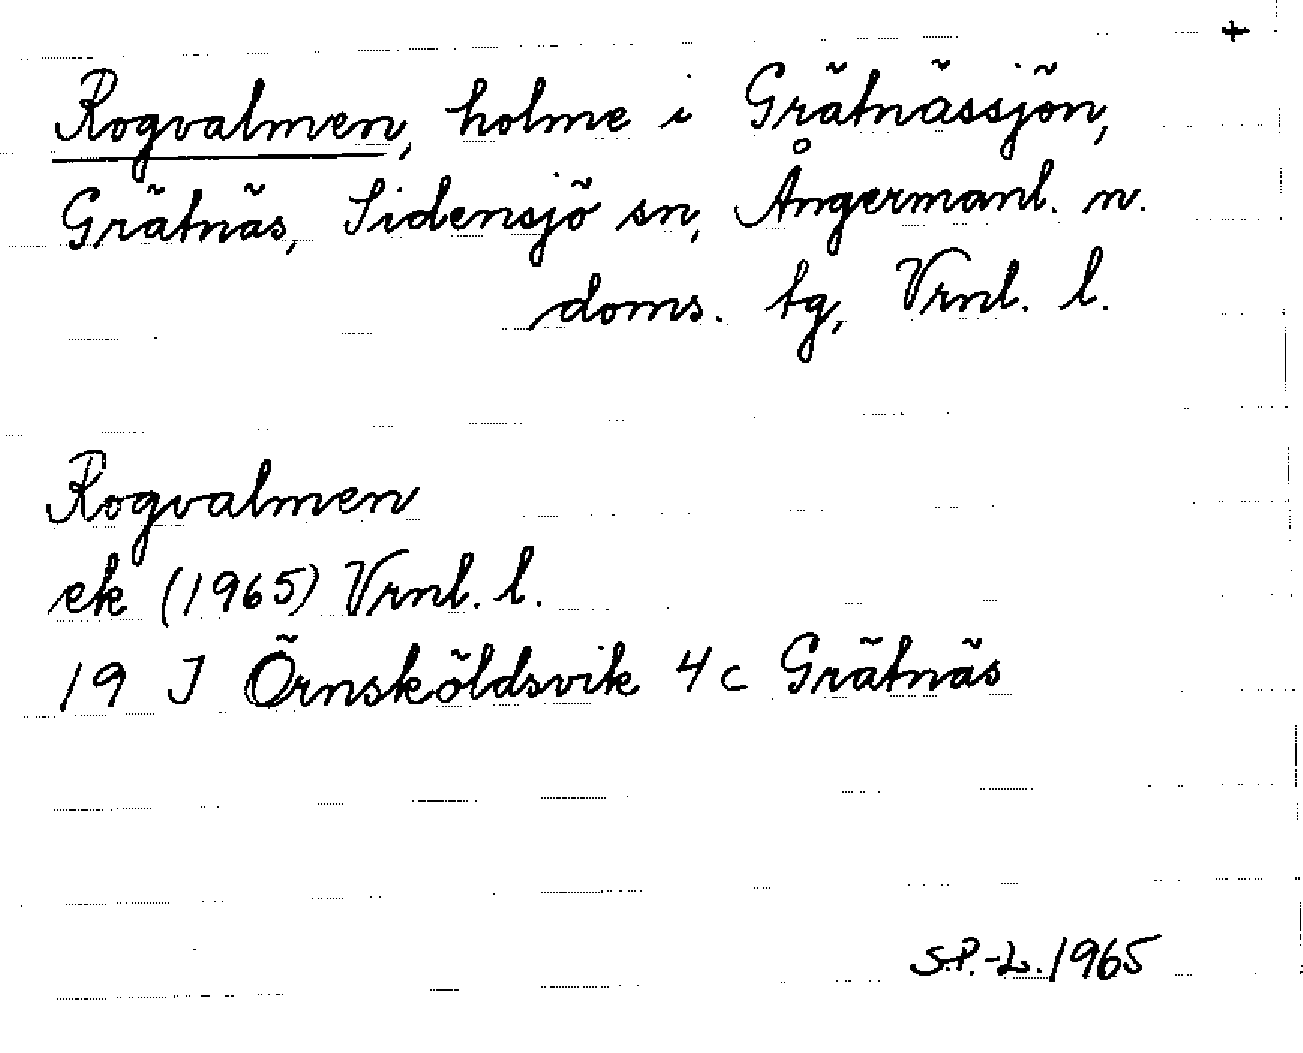 +
Rogvalmen, holme i Grätnässjön,
Grätnäs, Sidensjö sn, Ångermanl. n.
doms. tg, Vrnl. l.
Rogvalmen
ek (1965) Vrnl. l.
19 J Örnsköldsvik 4c Grätnäs
S.P.-L. 1965